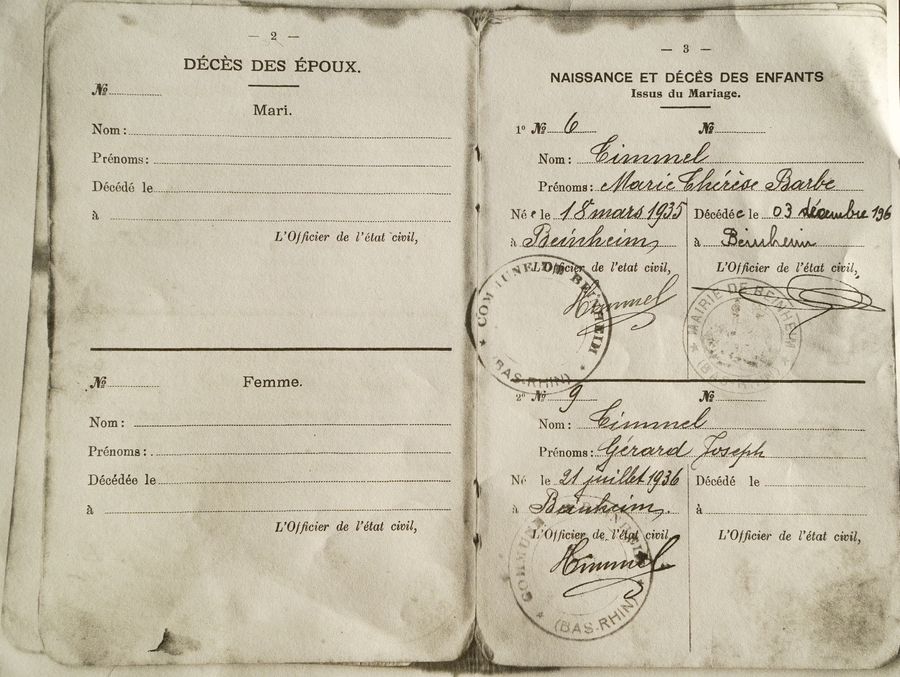 — 2 —
DÉCÈS DES ÉPOUX.
№
Mari.
Nom :
Prénoms :
Décédé le
à
L'Officier de l'état civil,
№
Femme.
Nom :
Prénoms :
Décédée le
à
L'Officier de l'état civil,
— 3 —
NAISSANCE ET DÉCÈS DES ENFANTS
Issus du Mariage.
1° № 6 №
Nom : Timmel
Prénoms : Marie Thérèse Barbe
Née le 18 mars 1935
à Beinheim,
L'Officier de l'etat civil,
Himmel
COMMUNE DE BEINHEIM
(BAS-RHIN)
Décédée le 03 décembre 196
à Beinheim
L'Officier de l'état civil,
MAIRIE DE BEINHEIM
(BAS-RHIN)
2° № 9 №
Nom : Timmel
Prénoms : Gérard Joseph
Né le 21 juillet 1936
à Beinheim,
L'Officier de l'état civil
Himmel
COMMUNE BEINHEIM
(BAS-RHIN)
Décédé le
à
L'Officier de l'état civil,